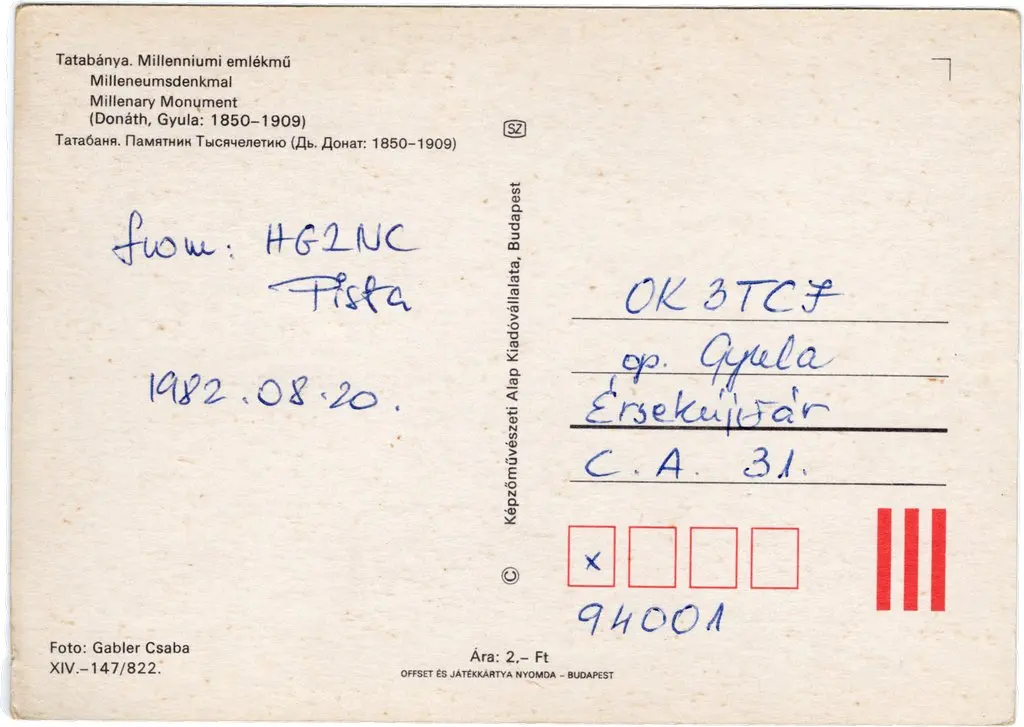 Tatabánya. Millenniumi emlékmű
Milleneumsdenkmal
Millenary Monument
(Donáth, Gyula: 1850–1909)
Татабаня. Памятник Тысячелетию (Дь. Донат: 1850–1909)
SZ
from: HG2NC
Pista
1982.08.20.
© Képzőművészeti Alap Kiadóvállalata, Budapest
OK3TCF
op. Gyula
Érsekújvár
C. A. 31.
x
94001
Foto: Gabler Csaba
XIV.–147/822.
Ára: 2,– Ft
OFFSET ÉS JÁTÉKKÁRTYA NYOMDA – BUDAPEST